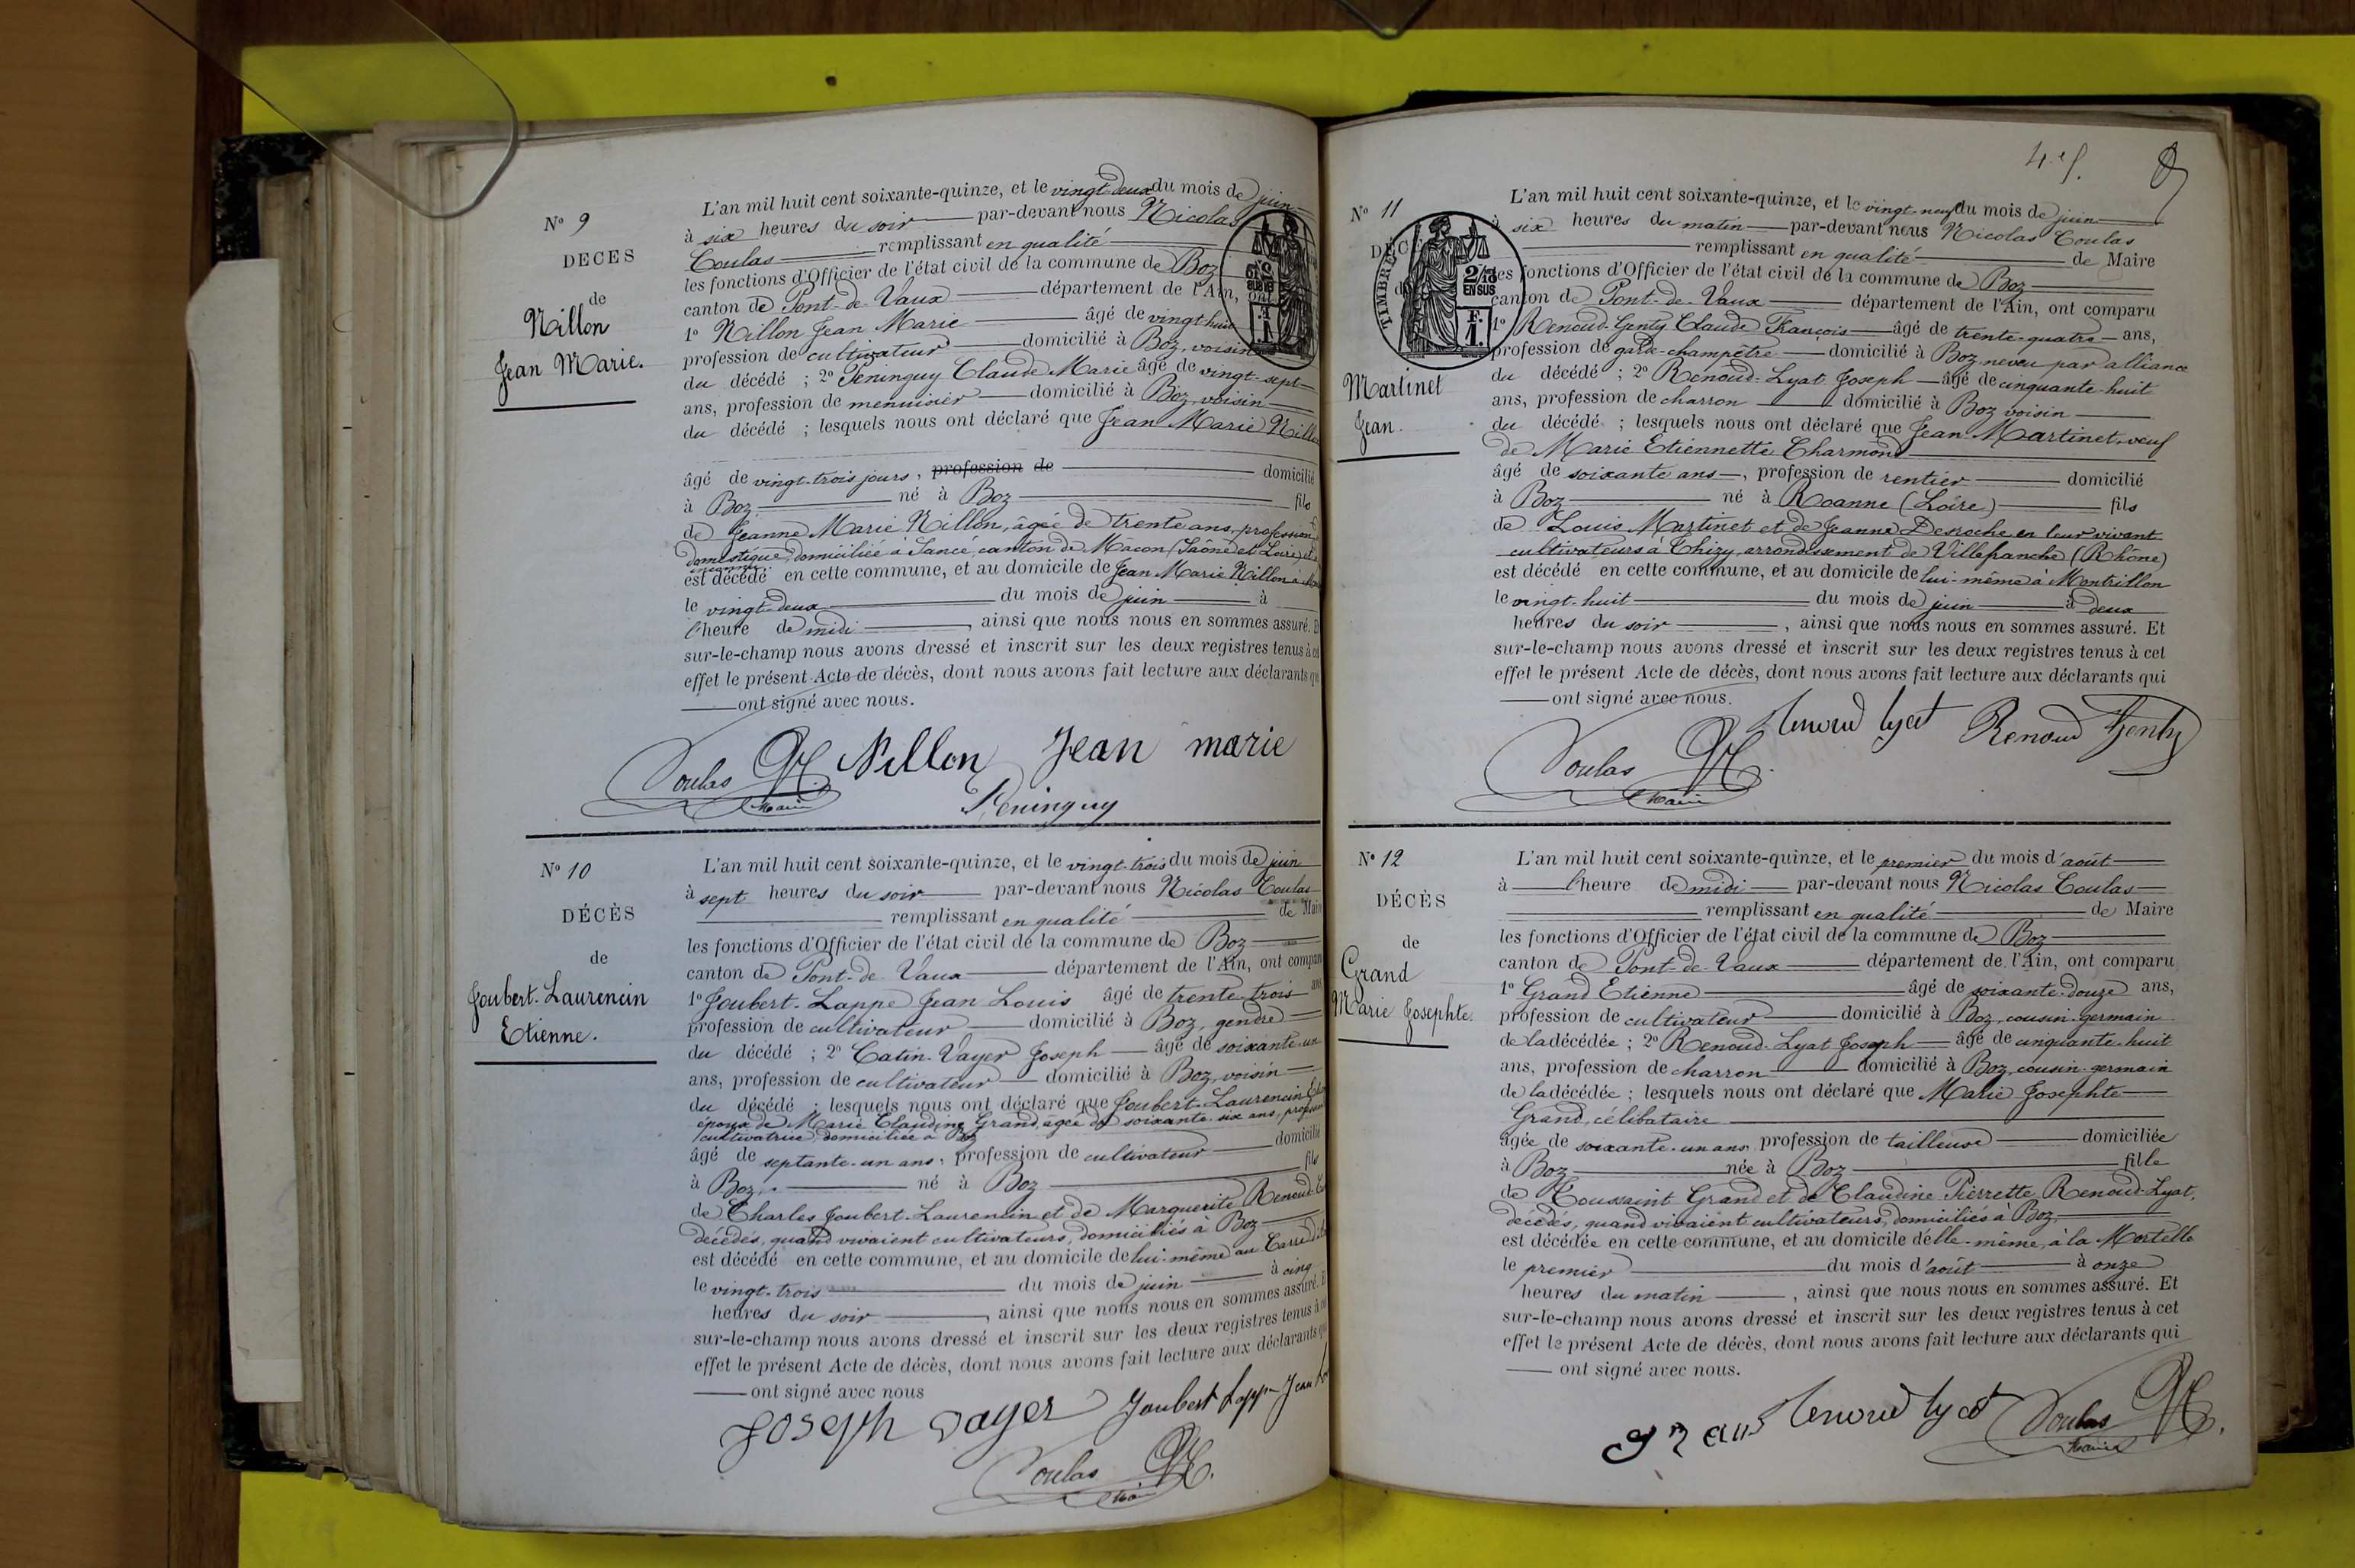 N° 9
DECES
de
Nillon
Jean Marie.
L'an mil huit cent soixante-quinze, et le vingt-deux du mois de juin
à six heures du soir par-devant nous Nicolas
Coulas remplissant en qualité
les fonctions d'Officier de l'état civil de la commune de Boz
canton de Pont-de-Vaux département de l'Ain, ont
1° Nillon Jean Marie âgé de vingt huit
profession de cultivateur domicilié à Boz, voisin
du décédé ; 2° Peninguy Claude Marie âgé de vingt-sept
ans, profession de menuisier domicilié à Boz, voisin
du décédé ; lesquels nous ont déclaré que Jean Marie Nillon
âgé de vingt-trois jours, profession de domicilié
à Boz né à Boz fils
de Jeanne Marie Nillon, âgée de trente ans, profession
domestique, domiciliée à Sancé, canton de Mâcon (Saône et Loire) et
inconnu.
est décédé en cette commune, et au domicile de Jean Marie Nillon à
le vingt-deux du mois de juin à
l'heure de midi, ainsi que nous nous en sommes assuré. Et
sur-le-champ nous avons dressé et inscrit sur les deux registres tenus à cet
effet le présent Acte de décès, dont nous avons fait lecture aux déclarants qui
ont signé avec nous.
Coulas Nillon Jean marie
Maire Peninguy
N° 10
DÉCÈS
de
Joubert-Laurencin
Etienne.
L'an mil huit cent soixante-quinze, et le vingt-trois du mois de juin
à sept heures du soir par-devant nous Nicolas Coulas
remplissant en qualité de Maire
les fonctions d'Officier de l'état civil de la commune de Boz
canton de Pont-de-Vaux département de l'Ain, ont comparu
1° Joubert-Lappe Jean Louis âgé de trente-trois ans
profession de cultivateur domicilié à Boz, gendre
du décédé ; 2° Catin-Vayer Joseph âgé de soixante-un
ans, profession de cultivateur domicilié à Boz, voisin
du décédé ; lesquels nous ont déclaré que Joubert-Laurencin
époux de Marie Claudine Grand, âgée de soixante-six ans, profession
cultivatrice, domiciliée à Boz
âgé de septante-un ans, profession de cultivateur domicilié
à Boz, né à Boz fils
de Charles Joubert-Laurencin et de Marguerite Renoud
décédés, quand vivaient cultivateurs, domiciliés à Boz
est décédé en cette commune, et au domicile de lui-même au
le vingt-trois du mois de juin à cinq
heures du soir, ainsi que nous nous en sommes assuré. Et
sur-le-champ nous avons dressé et inscrit sur les deux registres tenus à cet
effet le présent Acte de décès, dont nous avons fait lecture aux déclarants qui
ont signé avec nous
Joseph vayer Joubert Lappe Jean
Coulas
Maire
4 ef.
N° 11
DÉCÈ
TIMBRE
2/10
EN SUS
F.
1.
Martinet
Jean.
L'an mil huit cent soixante-quinze, et le vingt-neuf du mois de juin
à six heures du matin par-devant nous Nicolas Coulas
remplissant en qualité de Maire
les fonctions d'Officier de l'état civil de la commune de Boz
canton de Pont-de-Vaux département de l'Ain, ont comparu
1° Renoud-Genty Claude François âgé de trente-quatre ans,
profession de garde-champêtre domicilié à Boz neveu par alliance
du décédé ; 2° Renoud-Lyat Joseph âgé de cinquante-huit
ans, profession de charron domicilié à Boz voisin
du décédé ; lesquels nous ont déclaré que Jean Martinet, veuf
de Marie Etiennette Charmond
âgé de soixante ans, profession de rentier domicilié
à Boz né à Roanne (Loire) fils
de Louis Martinet et de Jeanne Desroche en leur vivant
cultivateurs à Thizy, arrondissement de Villefranche (Rhône)
est décédé en cette commune, et au domicile de lui-même à Montrillon
le vingt-huit du mois de juin à deux
heures du soir, ainsi que nous nous en sommes assuré. Et
sur-le-champ nous avons dressé et inscrit sur les deux registres tenus à cet
effet le présent Acte de décès, dont nous avons fait lecture aux déclarants qui
ont signé avec nous.
Renoud lyat Renoud Genty
Coulas
Maire
N° 12
DÉCÈS
de
Grand
Marie Josephte.
L'an mil huit cent soixante-quinze, et le premier du mois d'août
à l'heure de midi par-devant nous Nicolas Coulas
remplissant en qualité de Maire
les fonctions d'Officier de l'état civil de la commune de Boz
canton de Pont-de-Vaux département de l'Ain, ont comparu
1° Grand Etienne âgé de soixante-douze ans,
profession de cultivateur domicilié à Boz, cousin-germain
de la décédée ; 2° Renoud-Lyat Joseph âgé de cinquante-huit
ans, profession de charron domicilié à Boz, cousin-germain
de la décédée ; lesquels nous ont déclaré que Marie Josephte
Grand, célibataire
âgée de soixante-un ans, profession de tailleuse domiciliée
à Boz née à Boz fille
de Toussaint Grand et de Claudine Pierrette Renoud-Lyat,
décédés, quand vivaient cultivateurs, domiciliés à Boz,
est décédée en cette commune, et au domicile d'elle-même, à la Mortelle
le premier du mois d'août à onze
heures du matin, ainsi que nous nous en sommes assuré. Et
sur-le-champ nous avons dressé et inscrit sur les deux registres tenus à cet
effet le présent Acte de décès, dont nous avons fait lecture aux déclarants qui
ont signé avec nous.
grand Renoud lyat Coulas
Maire